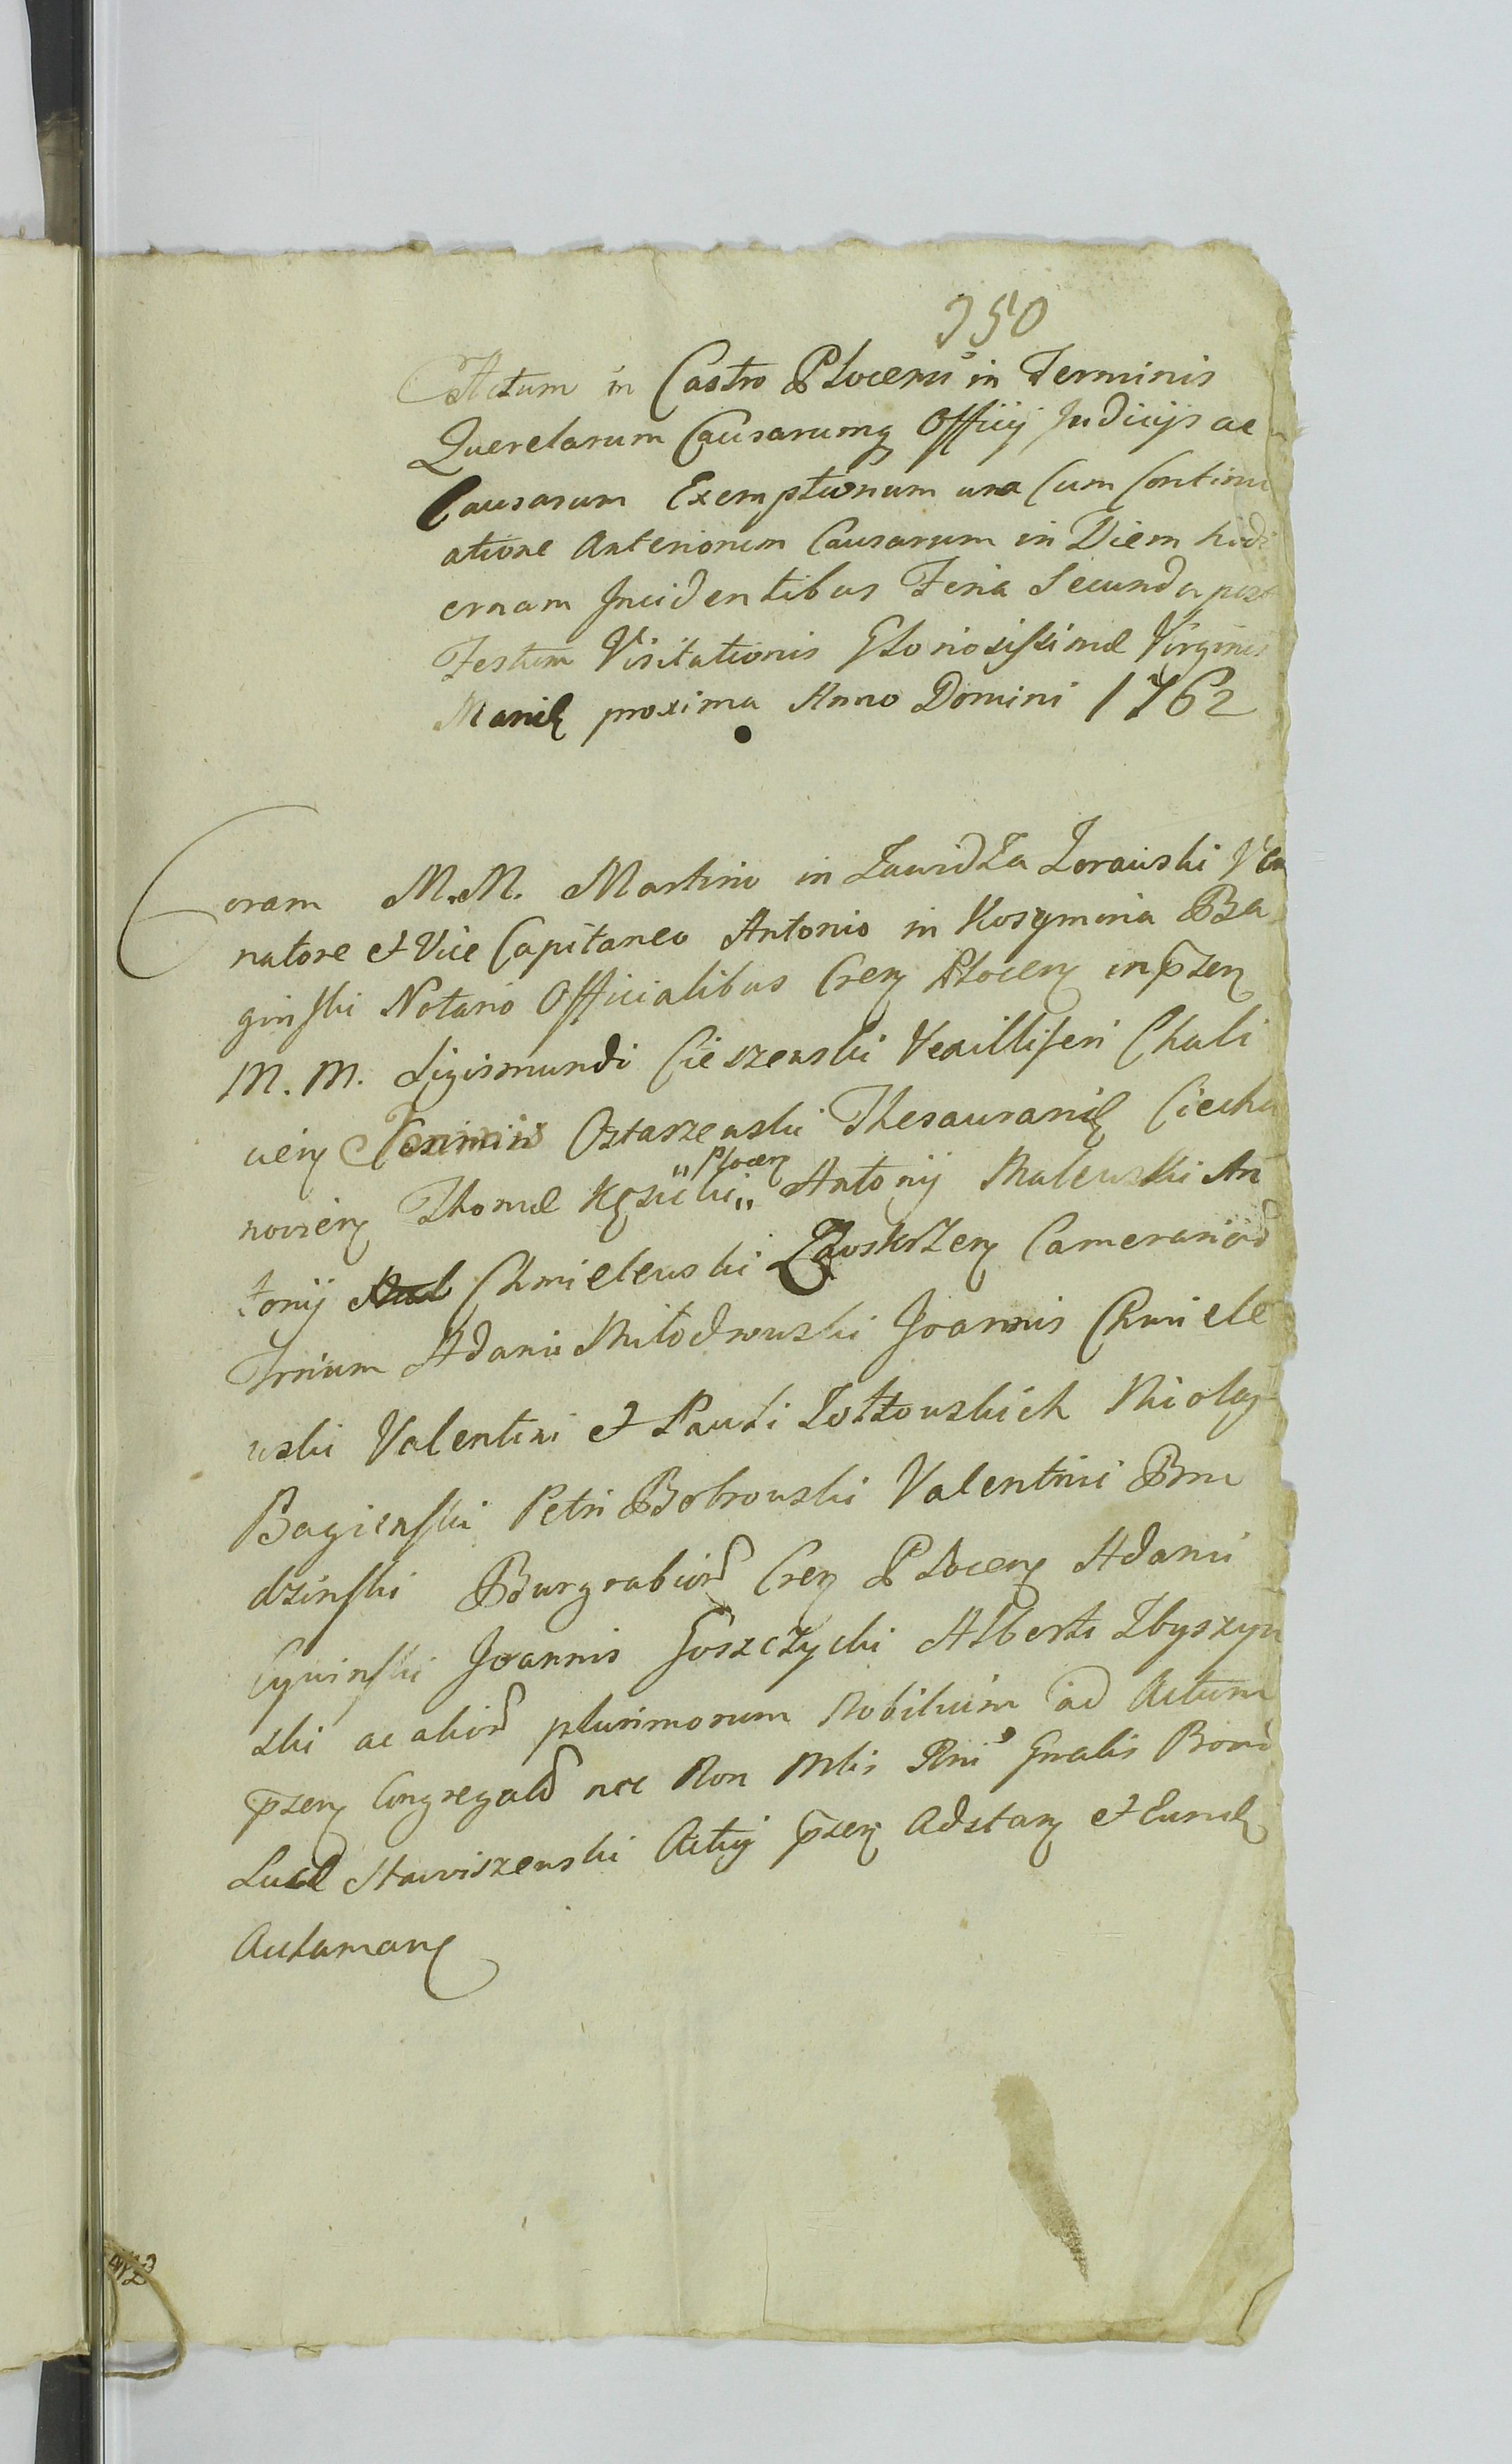 350
Actum in Castro Plocensi in Terminis
Querelarum Causarumq Officij Judicijs ac
Causarum Exemptionum una Cum Continu
atione Anteriorum Causarum in Diem hodi
ernam Incidentibus Feria Secunda post
Festum Visitationis Gloriosissimæ Virginis
Mariæ proxima Anno Domini 1762
Coram M.M. Martino in Zawidza Zorawski Ve
natore et Vice Capitaneo Antonio in Kosymina Ba
ginski Notario Officialibus Cren Plocen in p̃zen
M. M. Sigismundi Cieszewski Vexilliferi Chali
cien Ostaszewski Thesaurarij Ciecha
novien Thomæ "Plocen" Antonij Malewski An
tonij Chmielewski Zawskrzen Camerarior
Trium Adami Miłodrowski Joannis Chmiele
wski Valentini et Pauli Zołtowskich Nicolaj
Bagienski Petri Bobrowski Valentini Bru
dzinski Burgrabior Cren Plocen Adami
Cywinski Joannis Goszczycki Alberti Zbyszyn
ski ac alior plurimorum Nobilium ad Actum
p̃zen Congregator nec Non Mlis Rni Gnalis
Lucæ Stawiszewski Actij p̃zen Adstan et Eund
Acclaman